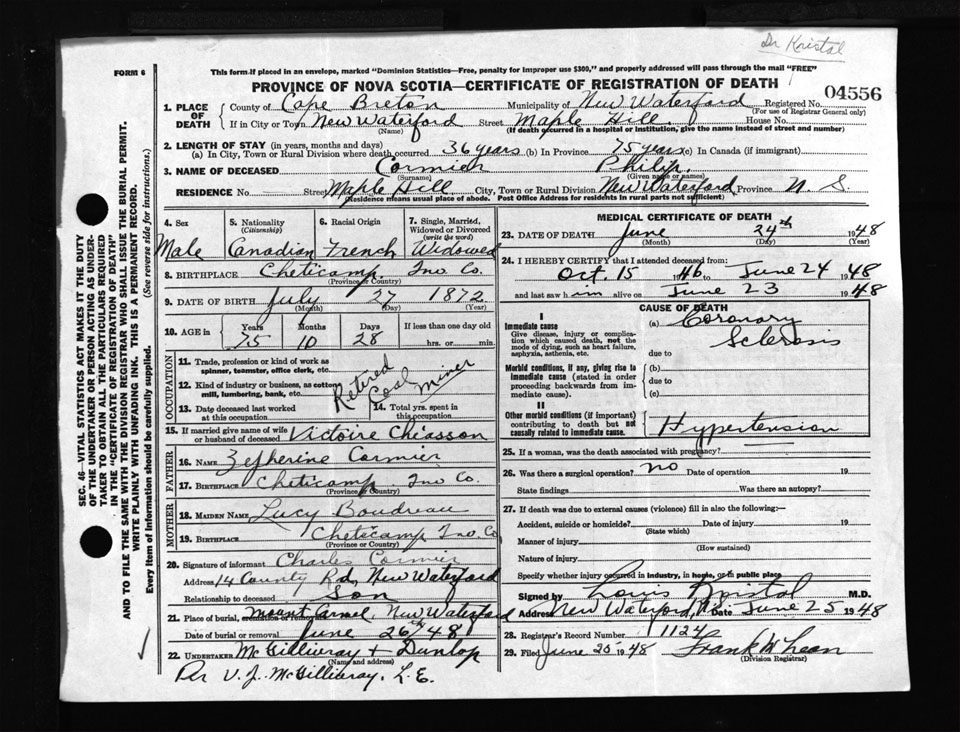 Dr Kristal
FORM 6
This form if placed in an envelope, marked "Dominion Statistics—Free, penalty for improper use $300," and properly addressed will pass through the mail "FREE"
PROVINCE OF NOVA SCOTIA—CERTIFICATE OF REGISTRATION OF DEATH
04556
1. PLACE OF DEATH
County of Cape Breton Municipality of New Waterford Registered No.
(For use of Registrar General only)
If in City or Town New Waterford Street Maple Hill House No.
(Name) (If death occurred in a hospital or institution, give the name instead of street and number)
2. LENGTH OF STAY (in years, months and days)
(a) In City, Town or Rural Division where death occurred 36 years (b) In Province 75 years (c) In Canada (if immigrant)
3. NAME OF DECEASED Cormier Philip.
(Surname) (Given name or names)
RESIDENCE No. Street Maple Hill City, Town or Rural Division New Waterford Province N. S.
(Residence means usual place of abode. Post Office Address for residents in rural parts not sufficient)
4. Sex
Male
5. Nationality (Citizenship)
Canadian
6. Racial Origin
French
7. Single, Married, Widowed or Divorced (write the word)
Widowed
8. BIRTHPLACE Cheticamp. Inv. Co.
(Province or Country)
9. DATE OF BIRTH July 27 1872
(Month) (Day) (Year)
10. AGE in Years Months Days If less than one day old
75 10 28 hrs. or min.
OCCUPATION
11. Trade, profession or kind of work as spinner, teamster, office clerk, etc.
12. Kind of industry or business, as cotton mill, lumbering, bank, etc.
Retired Coal Miner
13. Date deceased last worked at this occupation
14. Total yrs. spent in this occupation
15. If married give name of wife or husband of deceased Victoire Chiasson
FATHER
16. NAME Zepherine Cormier
17. BIRTHPLACE Cheticamp Inv Co.
(Province or Country)
MOTHER
18. MAIDEN NAME Lucy Boudreau
19. BIRTHPLACE Cheticamp Inv. Co
(Province or Country)
20. Signature of informant Charles Cormier
Address 14 County Rd, New Waterford
Relationship to deceased Son
21. Place of burial, cremation or removal Mount Carmel, New Waterford
Date of burial or removal June 26th/48
22. UNDERTAKER McGillivray + Dunlop
(Name and address)
Per V. J. McGillivray, L. E.
MEDICAL CERTIFICATE OF DEATH
23. DATE OF DEATH June 24th 1948
(Month) (Day) (Year)
24. I HEREBY CERTIFY that I attended deceased from:
Oct. 15 1946 to June 24 1948
and last saw him alive on June 23 1948
CAUSE OF DEATH
I
Immediate cause
Give disease, injury or complication which caused death, not the mode of dying, such as heart failure, asphyxia, asthenia, etc.
(a) Coronary Sclerosis
due to
Morbid conditions, if any, giving rise to immediate cause (stated in order proceeding backwards from immediate cause).
(b)
due to
(c)
II
Other morbid conditions (if important) contributing to death but not causally related to immediate cause.
Hypertension
25. If a woman, was the death associated with pregnancy?
26. Was there a surgical operation? no Date of operation 19
State findings Was there an autopsy?
27. If death was due to external causes (violence) fill in also the following:—
Accident, suicide or homicide? Date of injury 19
(State which)
Manner of injury
(How sustained)
Nature of injury
Specify whether injury occurred in industry, in home, or in public place
Signed by Louis Kristal M.D.
Address New Waterford, N.S. Date June 25 1948
28. Registrar's Record Number 1124
29. Filed June 20 1948 Frank McLean
(Division Registrar)
SEC. 46—VITAL STATISTICS ACT MAKES IT THE DUTY
OF THE UNDERTAKER OR PERSON ACTING AS UNDER-
TAKER TO OBTAIN ALL THE PARTICULARS REQUIRED
IN THE "CERTIFICATE OF REGISTRATION OF DEATH"
AND TO FILE THE SAME WITH THE DIVISION REGISTRAR WHO SHALL ISSUE THE BURIAL PERMIT.
WRITE PLAINLY WITH UNFADING INK. THIS IS A PERMANENT RECORD.
Every item of information should be carefully supplied. (See reverse side for instructions.)